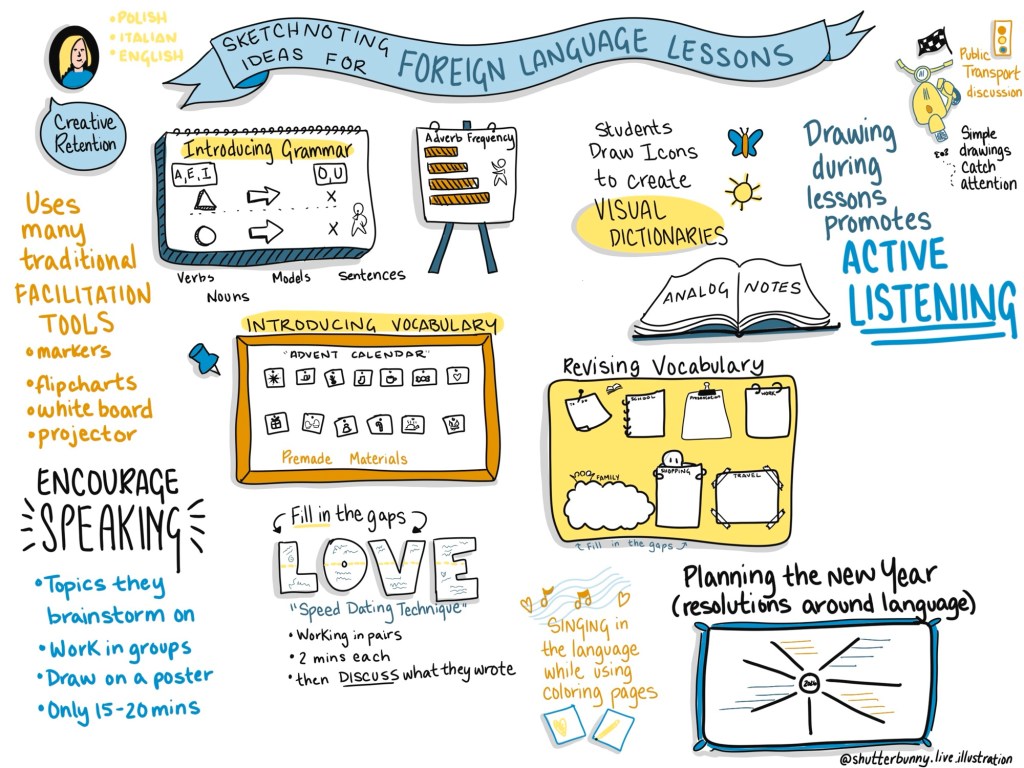 • POLISH
• ITALIAN
• ENGLISH
Creative
Retention
SKETCHNOTING
IDEAS FOR
FOREIGN LANGUAGE LESSONS
Public
Transport
discussion
Simple
drawings
catch
attention
Uses
many
traditional
FACILITATION
TOOLS
• markers
• flipcharts
• white board
• projector
Introducing Grammar
A, E, I
O, U
X
X
Verbs
Nouns
Models
Sentences
Adverb Frequency
Students
Draw Icons
to create
VISUAL
DICTIONARIES
ANALOG NOTES
Drawing
during
lessons
promotes
ACTIVE
LISTENING
INTRODUCING VOCABULARY
"ADVENT CALENDAR"
Premade Materials
Revising Vocabulary
SCHOOL
PRESENTATION
WORK
FAMILY
SHOPPING
TRAVEL
Fill in the gaps
ENCOURAGE
SPEAKING
• Topics they
brainstorm on
• Work in groups
• Draw on a poster
• Only 15-20 mins
Fill in the gaps
LOVE
"Speed Dating Technique"
• Working in pairs
• 2 mins each
• then DISCUSS what they wrote
SINGING in
the language
while using
coloring pages
Planning the New Year
(resolutions around language)
2024
@shutterbunny.live.illustration